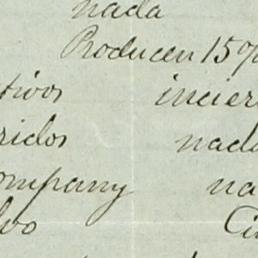 nada
Producen 15%
tivos incier
ridos nada
ompany na
lvo Ci